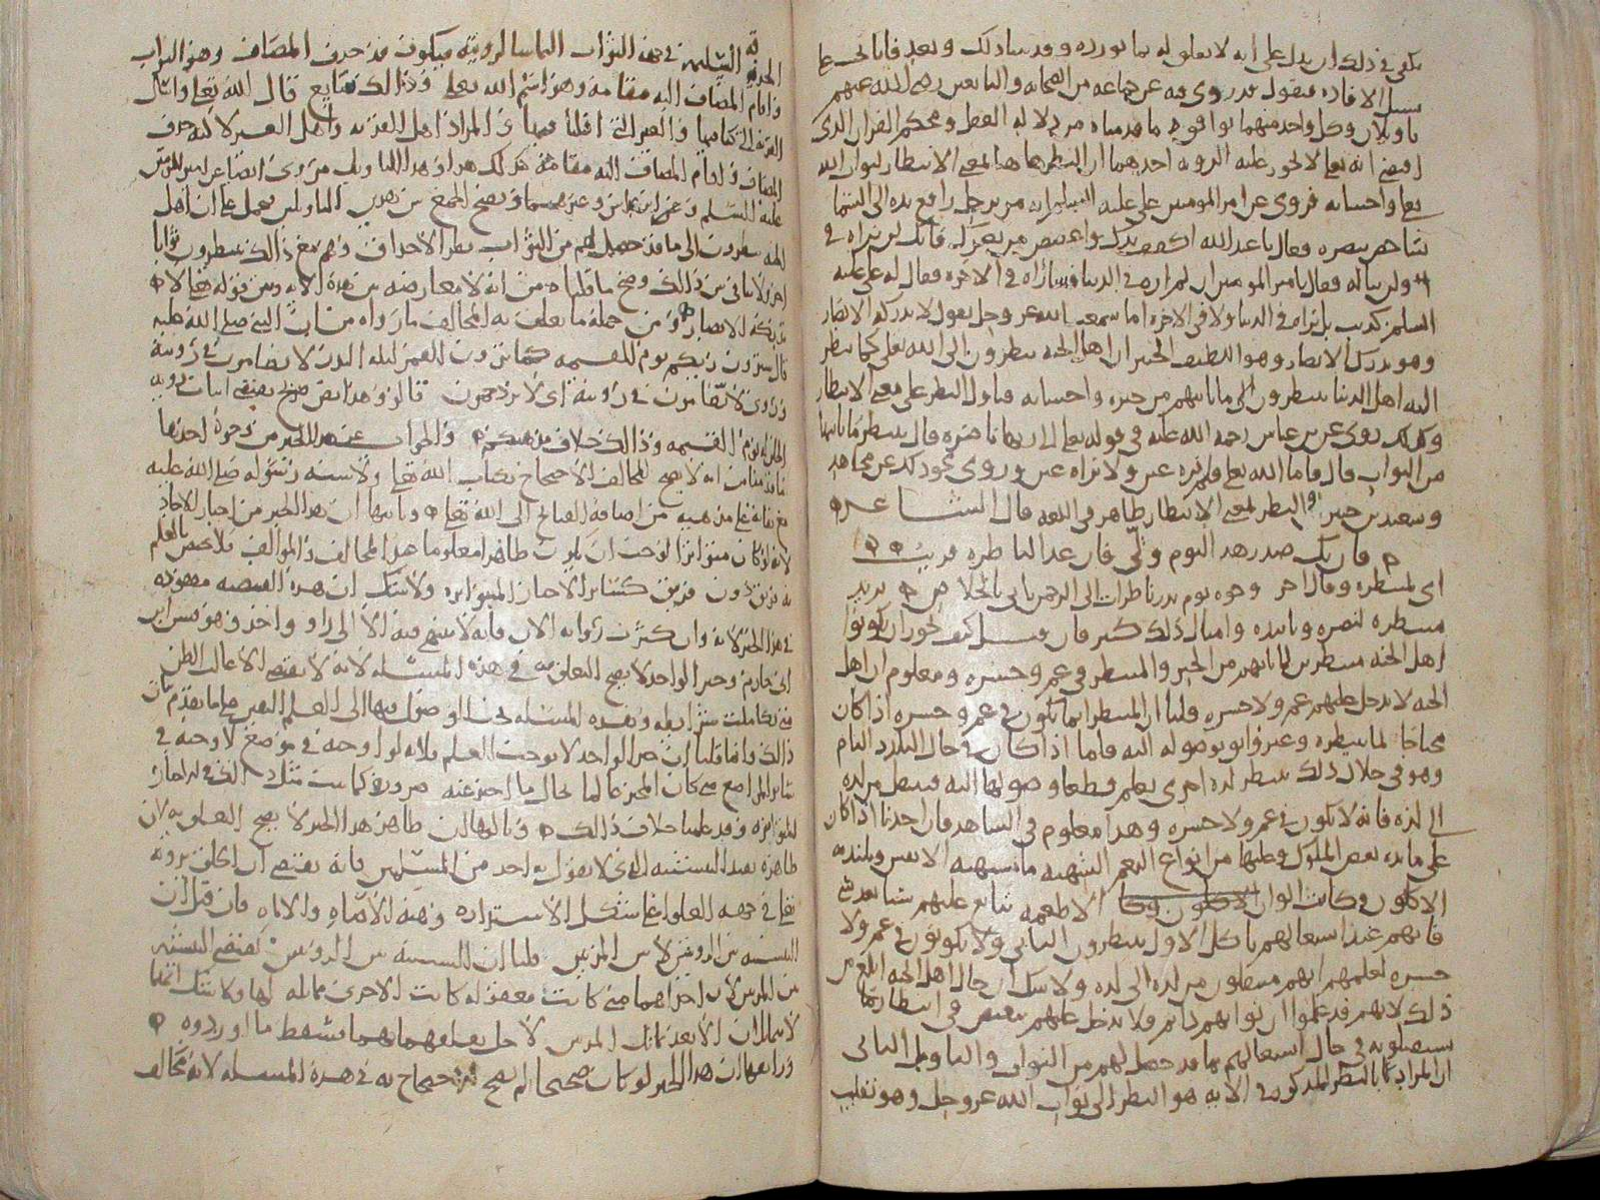 يكفي في ذلك ان يدل على انه لا تعلق له بما نورده وقد بينا ذلك وبعد فانا على
سبيل الافاده فنقول قد روي فيه عن جماعه من الصحابه والتابعين رضي الله عنهم
تاويلان وكل واحد منهما يوافق ما قدمناه من دلاله العقل ومحكم القران الذي
اقتضى انه تعالى لا تجوز عليه الرويه احدهما ان النظر هاهنا بمعنى الانتظار لثواب الله
تعالى واحسانه فروي عن امير المومنين علي عليه السلم انه مر برجل رافع يده الى السما
شاخص ببصره فقال يا عبد الله اكفف يدك واغضض من بصرك فانك لن تراه
ولن تناله فقال يا امير المومنين ان لم اره في الدنيا فساراه في الاخره فقال له علي عليه
السلم كذبت بل لا تراه في الدنيا ولا في الاخره اما سمعت الله عز وجل يقول لا تدركه الابصار
وهو يدرك الابصار وهو اللطيف الخبير ان اهل الجنه ينظرون الى الله تعالى كما ينظر
اليه اهل الدنيا ينتظرون الى ما ياتيهم من خيره واحسانه فتاول النظر على معنى الانتظار
وكذلك روي عن ابن عباس رحمه الله عليه في قوله تعالى الى ربها ناظره قال تنتظر ما ياتيها
من الثواب قال فاما الله تعالى فلم تره عين ولا تراه عين وروي نحو ذلك عن مجاهد
وسعيد بن جبير والنظر بمعنى الانتظار ظاهر في اللغه قال الشاعر
فان يك صدر هذا اليوم ولى فان غدا لناظره قريب
اي لمنتظره وقال اخر وجوه يوم بدر ناظرات الى الرحمن ياتي بالخلاص يريد
منتظره لنصره وتاييده وامثال ذلك كثير فان قيل كيف يجوز ان يكونوا
اهل الجنه منتظرين لما ياتيهم من الخير والمنتظر في غم وحسره ومعلوم ان اهل
الجنه لا يدخل عليهم غم ولا حسره قلنا ان المنتظر انما يكون في غم وحسره اذا كان
محتاجا لما ينتظره وغير واثق بوصوله اليه فاما اذا كان في حال التلذذ التام
وهو في خلال ذلك ينتظر لذه اخرى يعلم قطعا وصولها اليه فينتقل من لذه
الى لذه فانه لا يكون في غم ولا حسره وهذا معلوم في الشاهد فان احدنا اذا كان
على مائده بعض الملوك وعليها من انواع النعم الشهيه ما تشتهيه الانفس ويلتذه
الاكلون وكانت الوان الاطعمه تتابع عليهم شيا بعد شي
فانهم عند اشتغالهم باكل الاول ينتظرون الثاني ولا يكونون في غم ولا
حسره لعلمهم انهم ينتقلون من لذه الى لذه ولا شك ان حال اهل الجنه ابلغ من
ذلك لانهم قد علموا ان ثوابهم دائم فلا يدخل عليهم تنغيص في انتظار ما
سيصلونه في حال اشتغالهم بما قد حصل لهم من الثواب والتاويل الثاني
ان المراد بالنظر المذكور في الايه هو النظر الى ثواب الله عز وجل وهو تقليب
الحدقه السليمه في جهه الثواب التماسا لرويته فيكون قد حذف المضاف وهو الثواب
واقام المضاف اليه مقامه وهو اسم الله تعالى وذلك شايع قال الله تعالى واسال
القريه التي كنا فيها والعير التي اقبلنا فيها والمراد اهل القريه واهل العير لا انه حذف
المضاف واقام المضاف اليه مقامه كذلك هذا وهذا التاويل مروي ايضا عن امير المومنين
عليه السلم وعن ابن عباس وغيرهما ويصح الجمع بين هذين التاويلين يحمل على ان اهل
الجنه ينظرون الى ما قد حصل لهم من الثواب بنظر الاحداق وهم مع ذلك ينتظرون ثوابا
اخر ولا تنافي بين ذلك وصح ما قلناه من انه لا معارضه بين هذه الايه وبين قوله تعالى لا
تدركه الابصار ومن جمله ما يتعلق به المخالف ما رواه من ان النبي صلى الله عليه
قال سترون ربكم يوم القيمه كما ترون القمر ليله البدر لا تضامون في رويته
وروي لا تضامون في رويته اي لا تزدحمون قالوا وهذا نص صريح يقتضي اثبات رويه
الله تعالى يوم القيمه وذلك خلاف مذهبكم والجواب عن هذا الخبر من وجوه احدها
ما قدمنا من انه لا يصح للمخالف الاحتجاج بكتاب الله تعالى ولا سنه رسوله صلى الله عليه
مع بقائه على مذهبه من اضافه القبائح الى الله تعالى وثانيها ان هذا الخبر من اخبار الاحاد
لانه لو كان متواترا لوجب ان يكون ظاهرا معلوما هو للمخالف والموالف فلا يختص بالعلم
به فريق دون فريق كسائر الاخبار المتواتره ولا شك ان هذه القضيه مفقوده
في هذا الخبر لانه وان كثرت رواته الان فانه لا ينتهي فيه الا الى راو واحد وهو قيس بن
ابي حازم وخبر الواحد لا يصح التعلق به في هذه المسئله لانه لا يقتضي الا غالب الظن
متى تكاملت شرائطه وهذه المسئله يجب الوصول فيها الى العلم اليقين على ما تقدم بيان
ذلك وانما قلنا ان خبر الواحد لا يوجب العلم فلانه لو اوجبه في موضع لاوجبه في
سائر المواضع متى كان المخبر عالما بحال ما اخبر عنه ضروره كما يثبت مثل ذلك في الاخبار
المتواتره وقد علمنا خلاف ذلك وثالثها ان ظاهر هذا الخبر لا يصح التعلق به لان
ظاهره يفيد التشبيه الذي لا يقول به احد من المسلمين فانه يقتضي ان الخلق يرونه
تعالى في جهه العلو على شكل الاستداره وهيئه الاضاه والاناره فان قيل ان
التشبيه بين الرويتين لا بين المرئيين قلنا ان التشبيه بين الرويتين يقتضي التشبيه
بين المرئيين لان احداهما متى كانت معقوله كانت الاخرى مماثله لها ولا شك انهما
لا يتماثلان الا بعد تماثل المرئيين لاجل تعلقهما بهما فسقط ما اوردوه
ورابعها ان هذا الخبر لو كان صحيحا لم يصح الاحتجاج به في هذه المسئله لانه يخالف